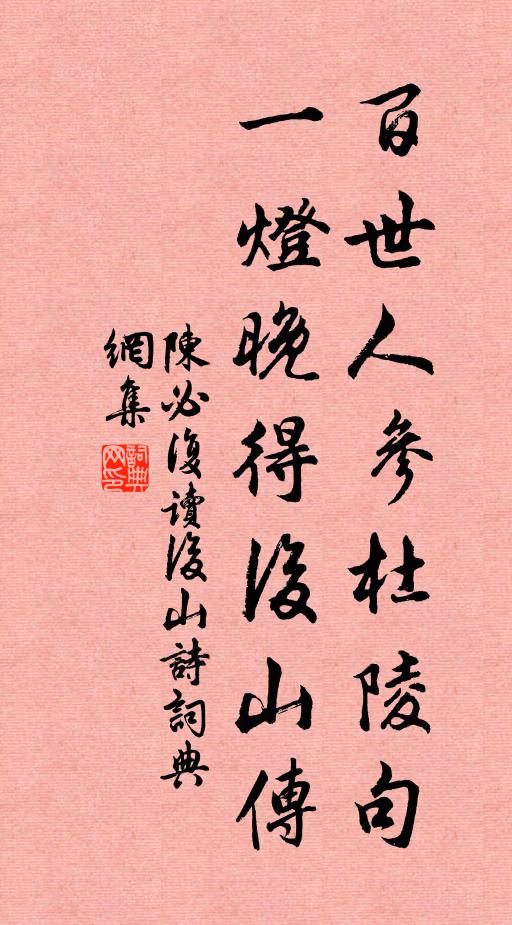 百世人參杜陵句
一燈晚得後山傳
陳必復讀後山詩詞典
網集
詞典
网印